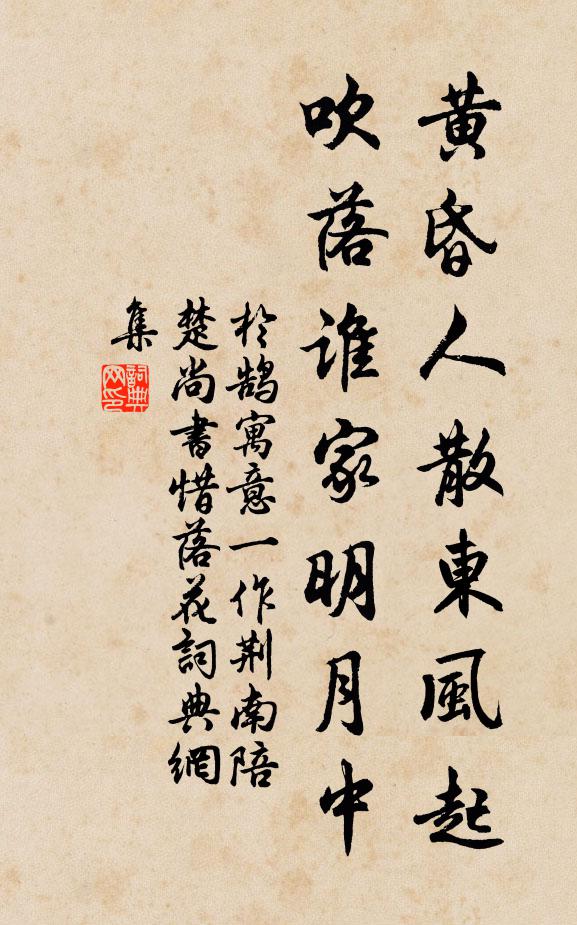 黄昏人散東風起
吹落誰家明月中
於鵠寓意一作荆南陪
楚尚書惜落花詞典網
集
詞典網印